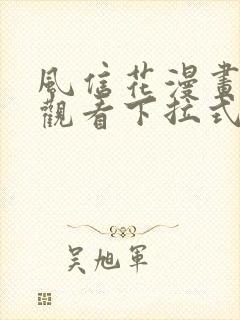 風信花漫畫
觀看下拉式
吳旭軍